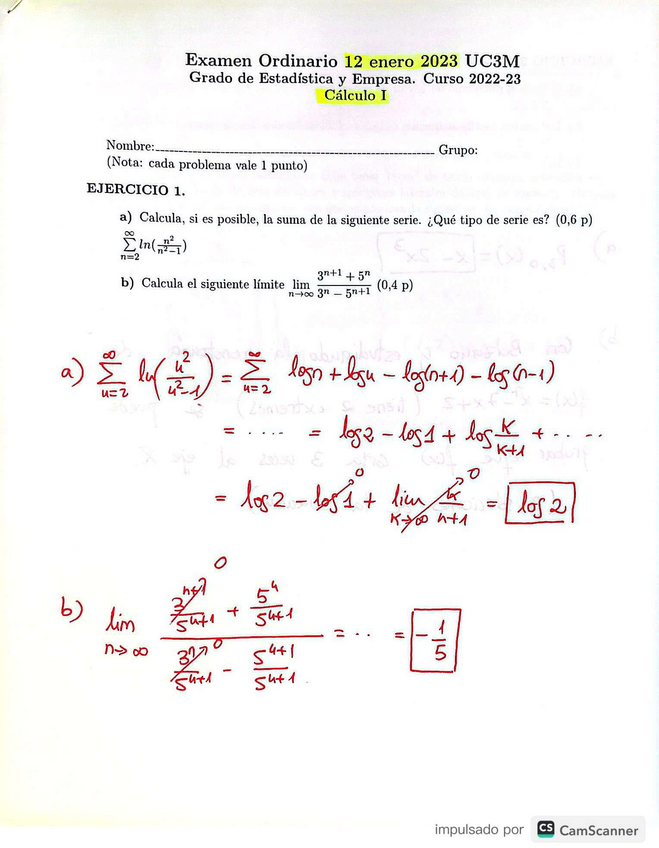 Examen Ordinario 12 enero 2023 UC3M
Grado de Estadística y Empresa. Curso 2022-23
Cálculo I
Nombre:---------- Grupo:
(Nota: cada problema vale 1 punto)
EJERCICIO 1.
a) Calcula, si es posible, la suma de la siguiente serie. ¿Qué tipo de serie es? (0,6 p)
∞ ∑ n=2 ln(n²/(n²−1))
b) Calcula el siguiente límite lim n→∞ (3^(n+1) + 5^n)/(3^n − 5^(n+1)) (0,4 p)
a) ∞ ∑ n=2 ln(n²/(n²−1)) = ∞ ∑ n=2 log n + log n − log(n+1) − log(n−1)
= .... = log 2 − log 1 + log K/(K+1) + .....
= log 2 − log 1 (0) + lim K→∞ K/(n+1) (0) = log 2
b) lim n→∞ (3^(n+1)/5^(n+1) (0) + 5^n/5^(n+1))/(3^n/5^(n+1) (0) − 5^(n+1)/5^(n+1)) = .. = −1/5
impulsado por CS CamScanner